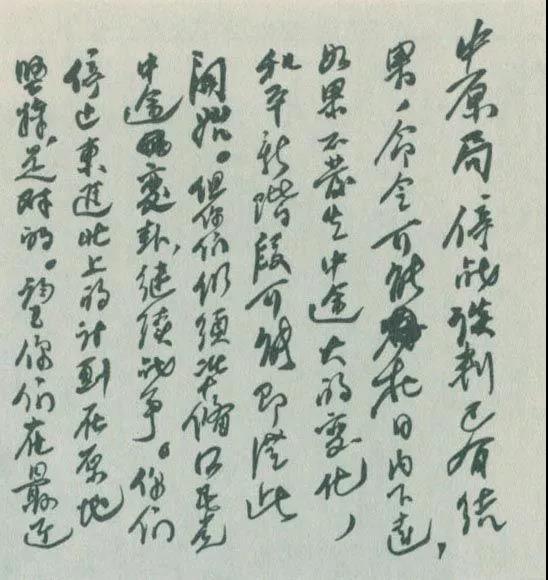 中原局 停战谈判已有结
果,命令可能於日内下达,
如果不发生中途大的变化,
和平新階段可能即從此
開始。但你们仍须准備国民党
中途變卦,继续战争。你们
停止東進北上的计劃在原地
坚持,是对的。望你们在最近